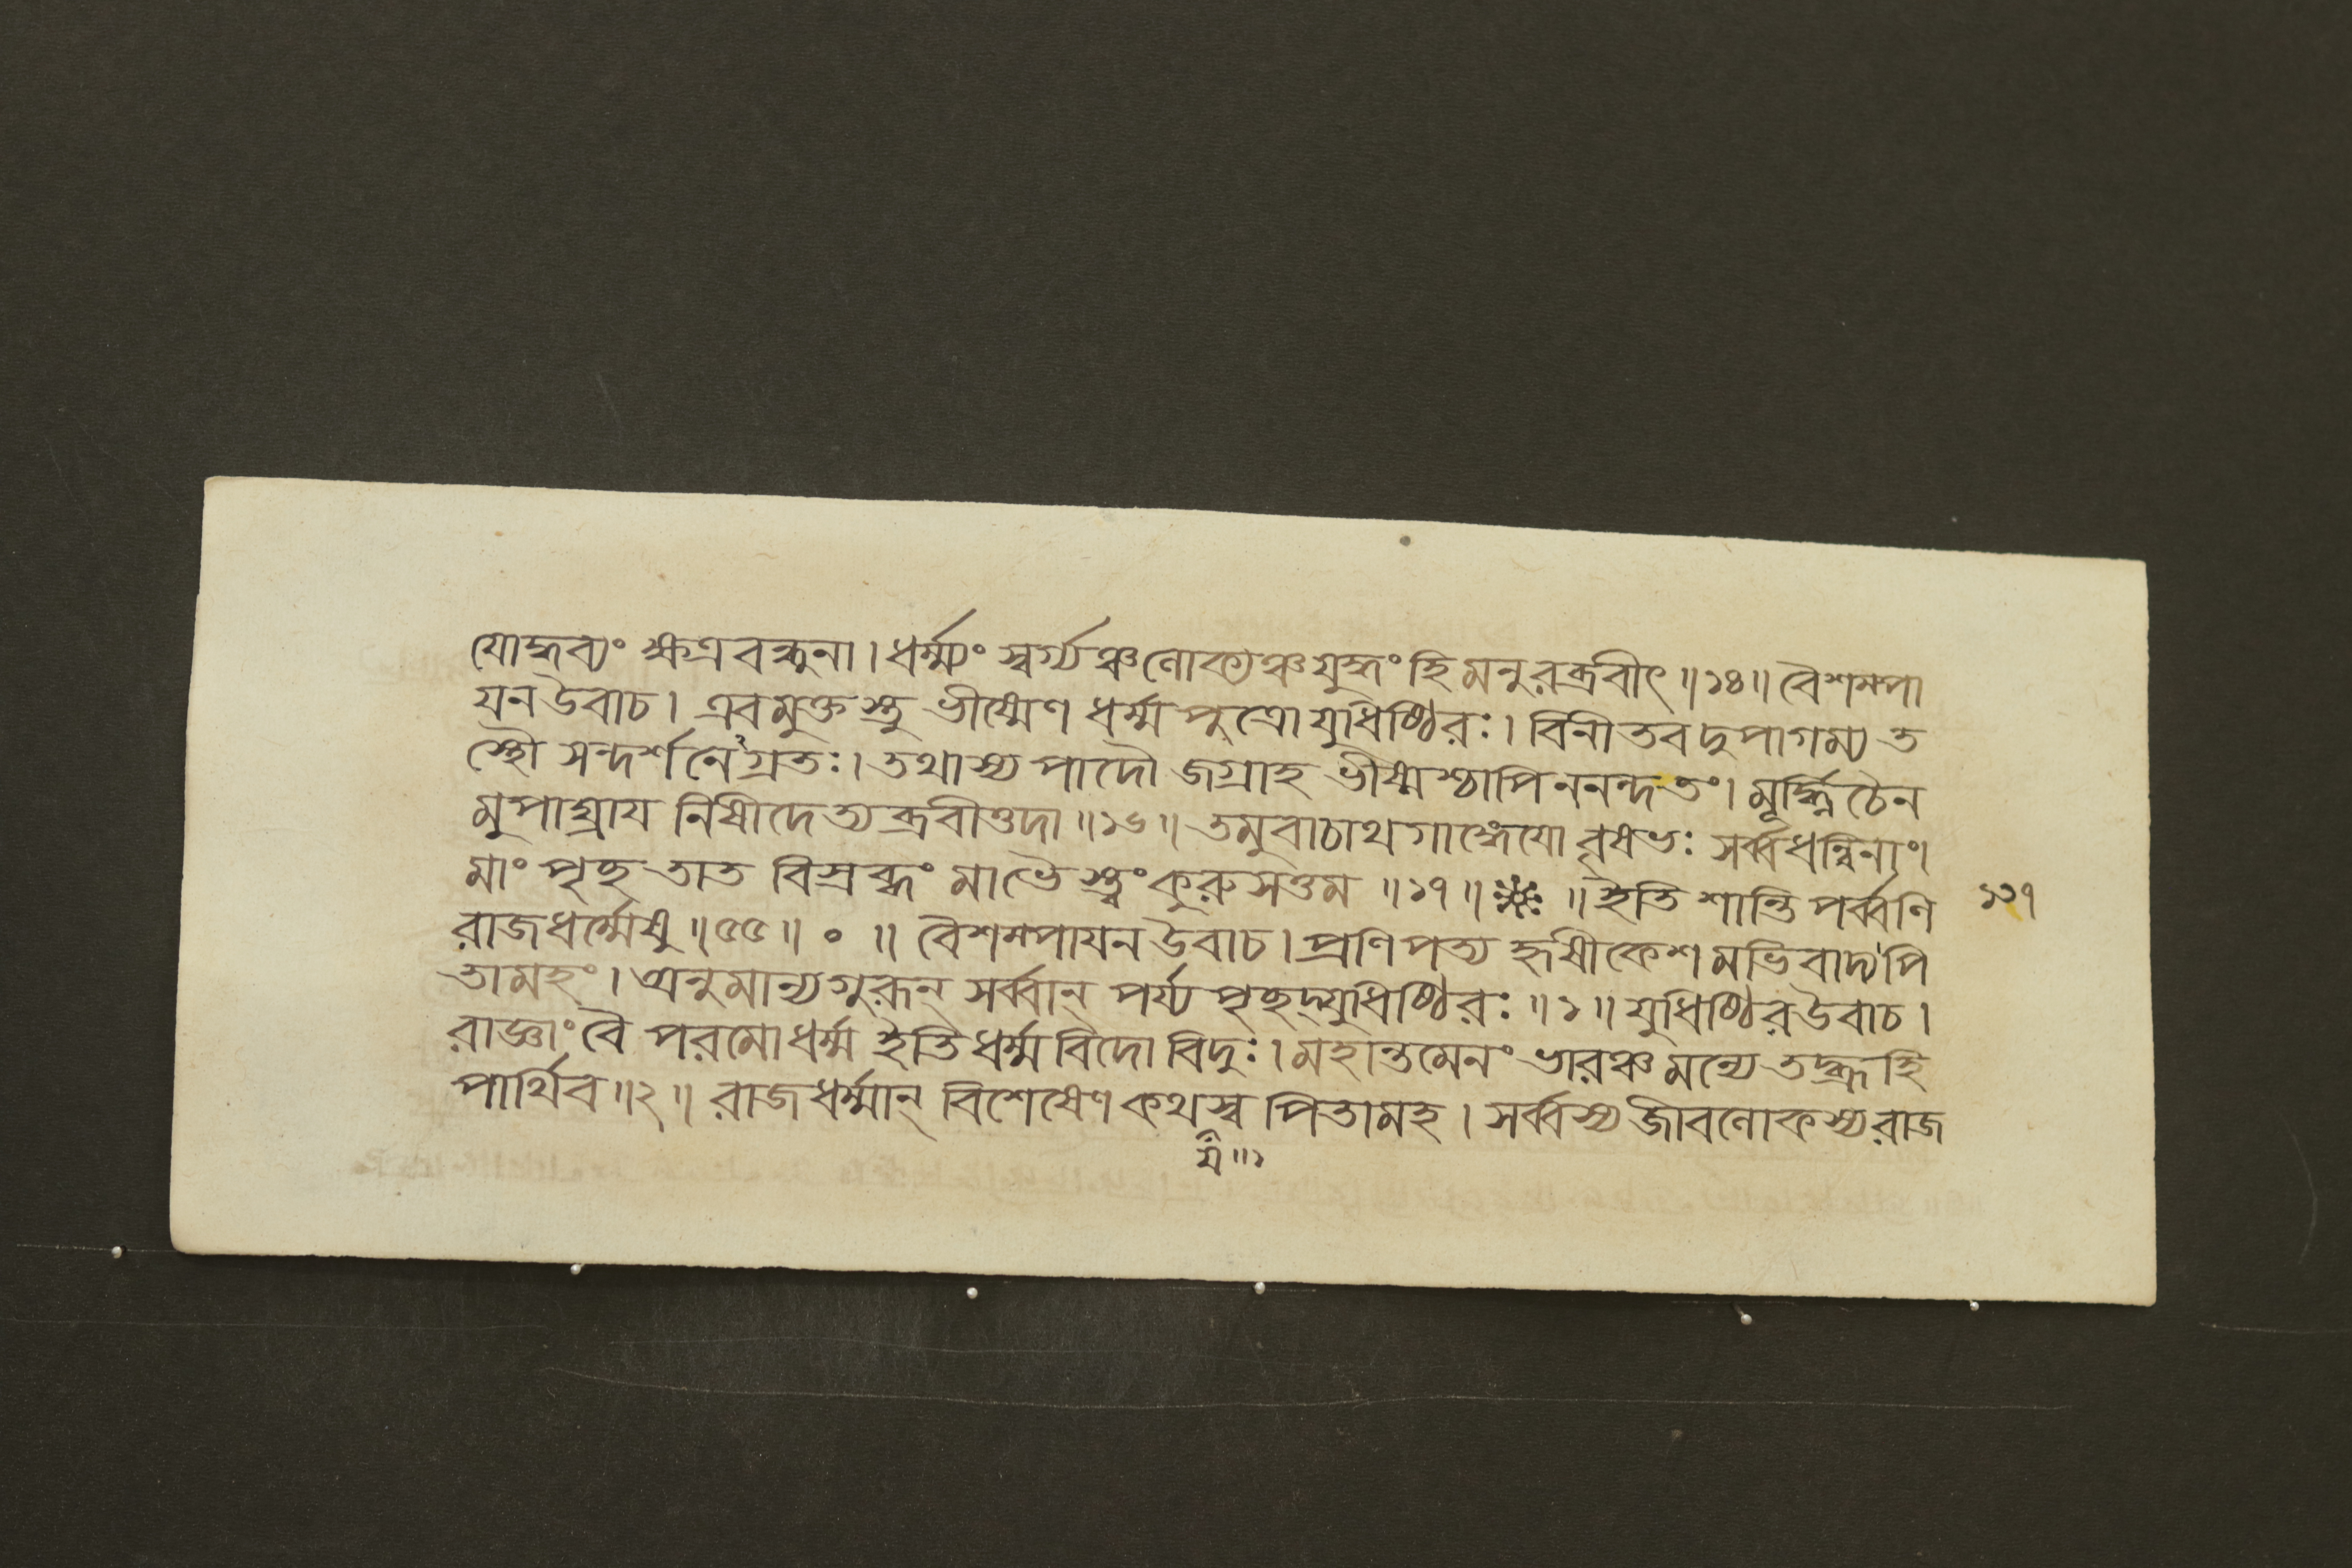 যোদ্ধব্যং ক্ষত্রবন্ধুনা। ধর্ম্ম্যং স্বর্গ্যঞ্চ লোক্যঞ্চ যুদ্ধং হি মনুরব্রবীৎ॥১৪॥ বৈশম্পা
যন উবাচ। এবমুক্তস্তু ভীষ্মেণ ধর্ম্মপুত্রো যুধিষ্ঠিরঃ। বিনীতবদুপাগম্য ত
স্থৌ সন্দর্শনেঽগ্রতঃ। তথাস্য পাদৌ জগ্রাহ ভীষ্মশ্চাপি ননন্দ তং। মূর্দ্ধ্নি চৈন
মুপাঘ্রায নিষীদেত্যব্রবীত্তদা॥১৬॥ তমুবাচাথ গাঙ্গেযো বৃষভঃ সর্ব্বধন্বিনাং।
মাং পৃচ্ছ তাত বিস্রব্ধং মা ভৈস্ত্বং কুরুসত্তম॥১৭॥ ॥ ইতি শান্তিপর্ব্বণি
১১৭
রাজধর্ম্মেষু॥৫৫॥০॥ বৈশম্পাযন উবাচ। প্রণিপত্য হৃষীকেশমভিবাদ্য পি
তামহং। অনুমান্য গুরূন্ সর্ব্বান্ পর্য্যপৃচ্ছদ্যুধিষ্ঠিরঃ॥১॥ যুধিষ্ঠির উবাচ।
রাজ্ঞাং বৈ পরমো ধর্ম্ম ইতি ধর্ম্মবিদো বিদুঃ। মহান্তমেনং ভারঞ্চ মন্যে তদ্ব্রূহি
পার্থিব॥২॥ রাজধর্ম্মান্ বিশেষেণ কথস্ব পিতামহ। সর্ব্বস্য জীবলোকস্য রাজ
য॥১